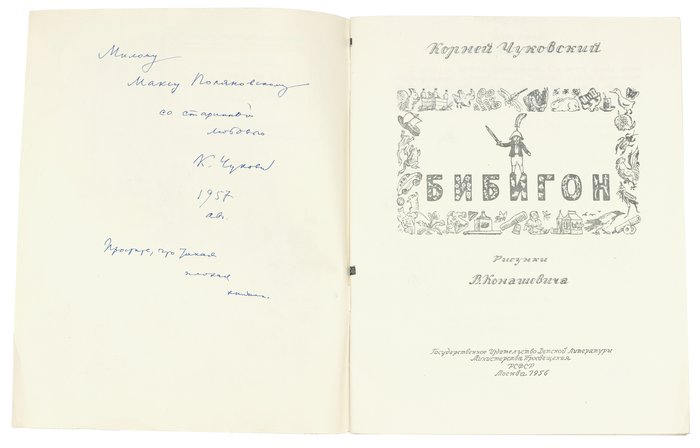 Милому
Максу Поляновскому
со старинной
любовью
К. Чуковский
1957
авг.
Простите, что такая
плохая
книга.
Корней Чуковский
БИБИГОН
Рисунки
В. Конашевича
Государственное Издательство Детской Литературы
Министерства Просвещения
РСФСР
Москва 1956